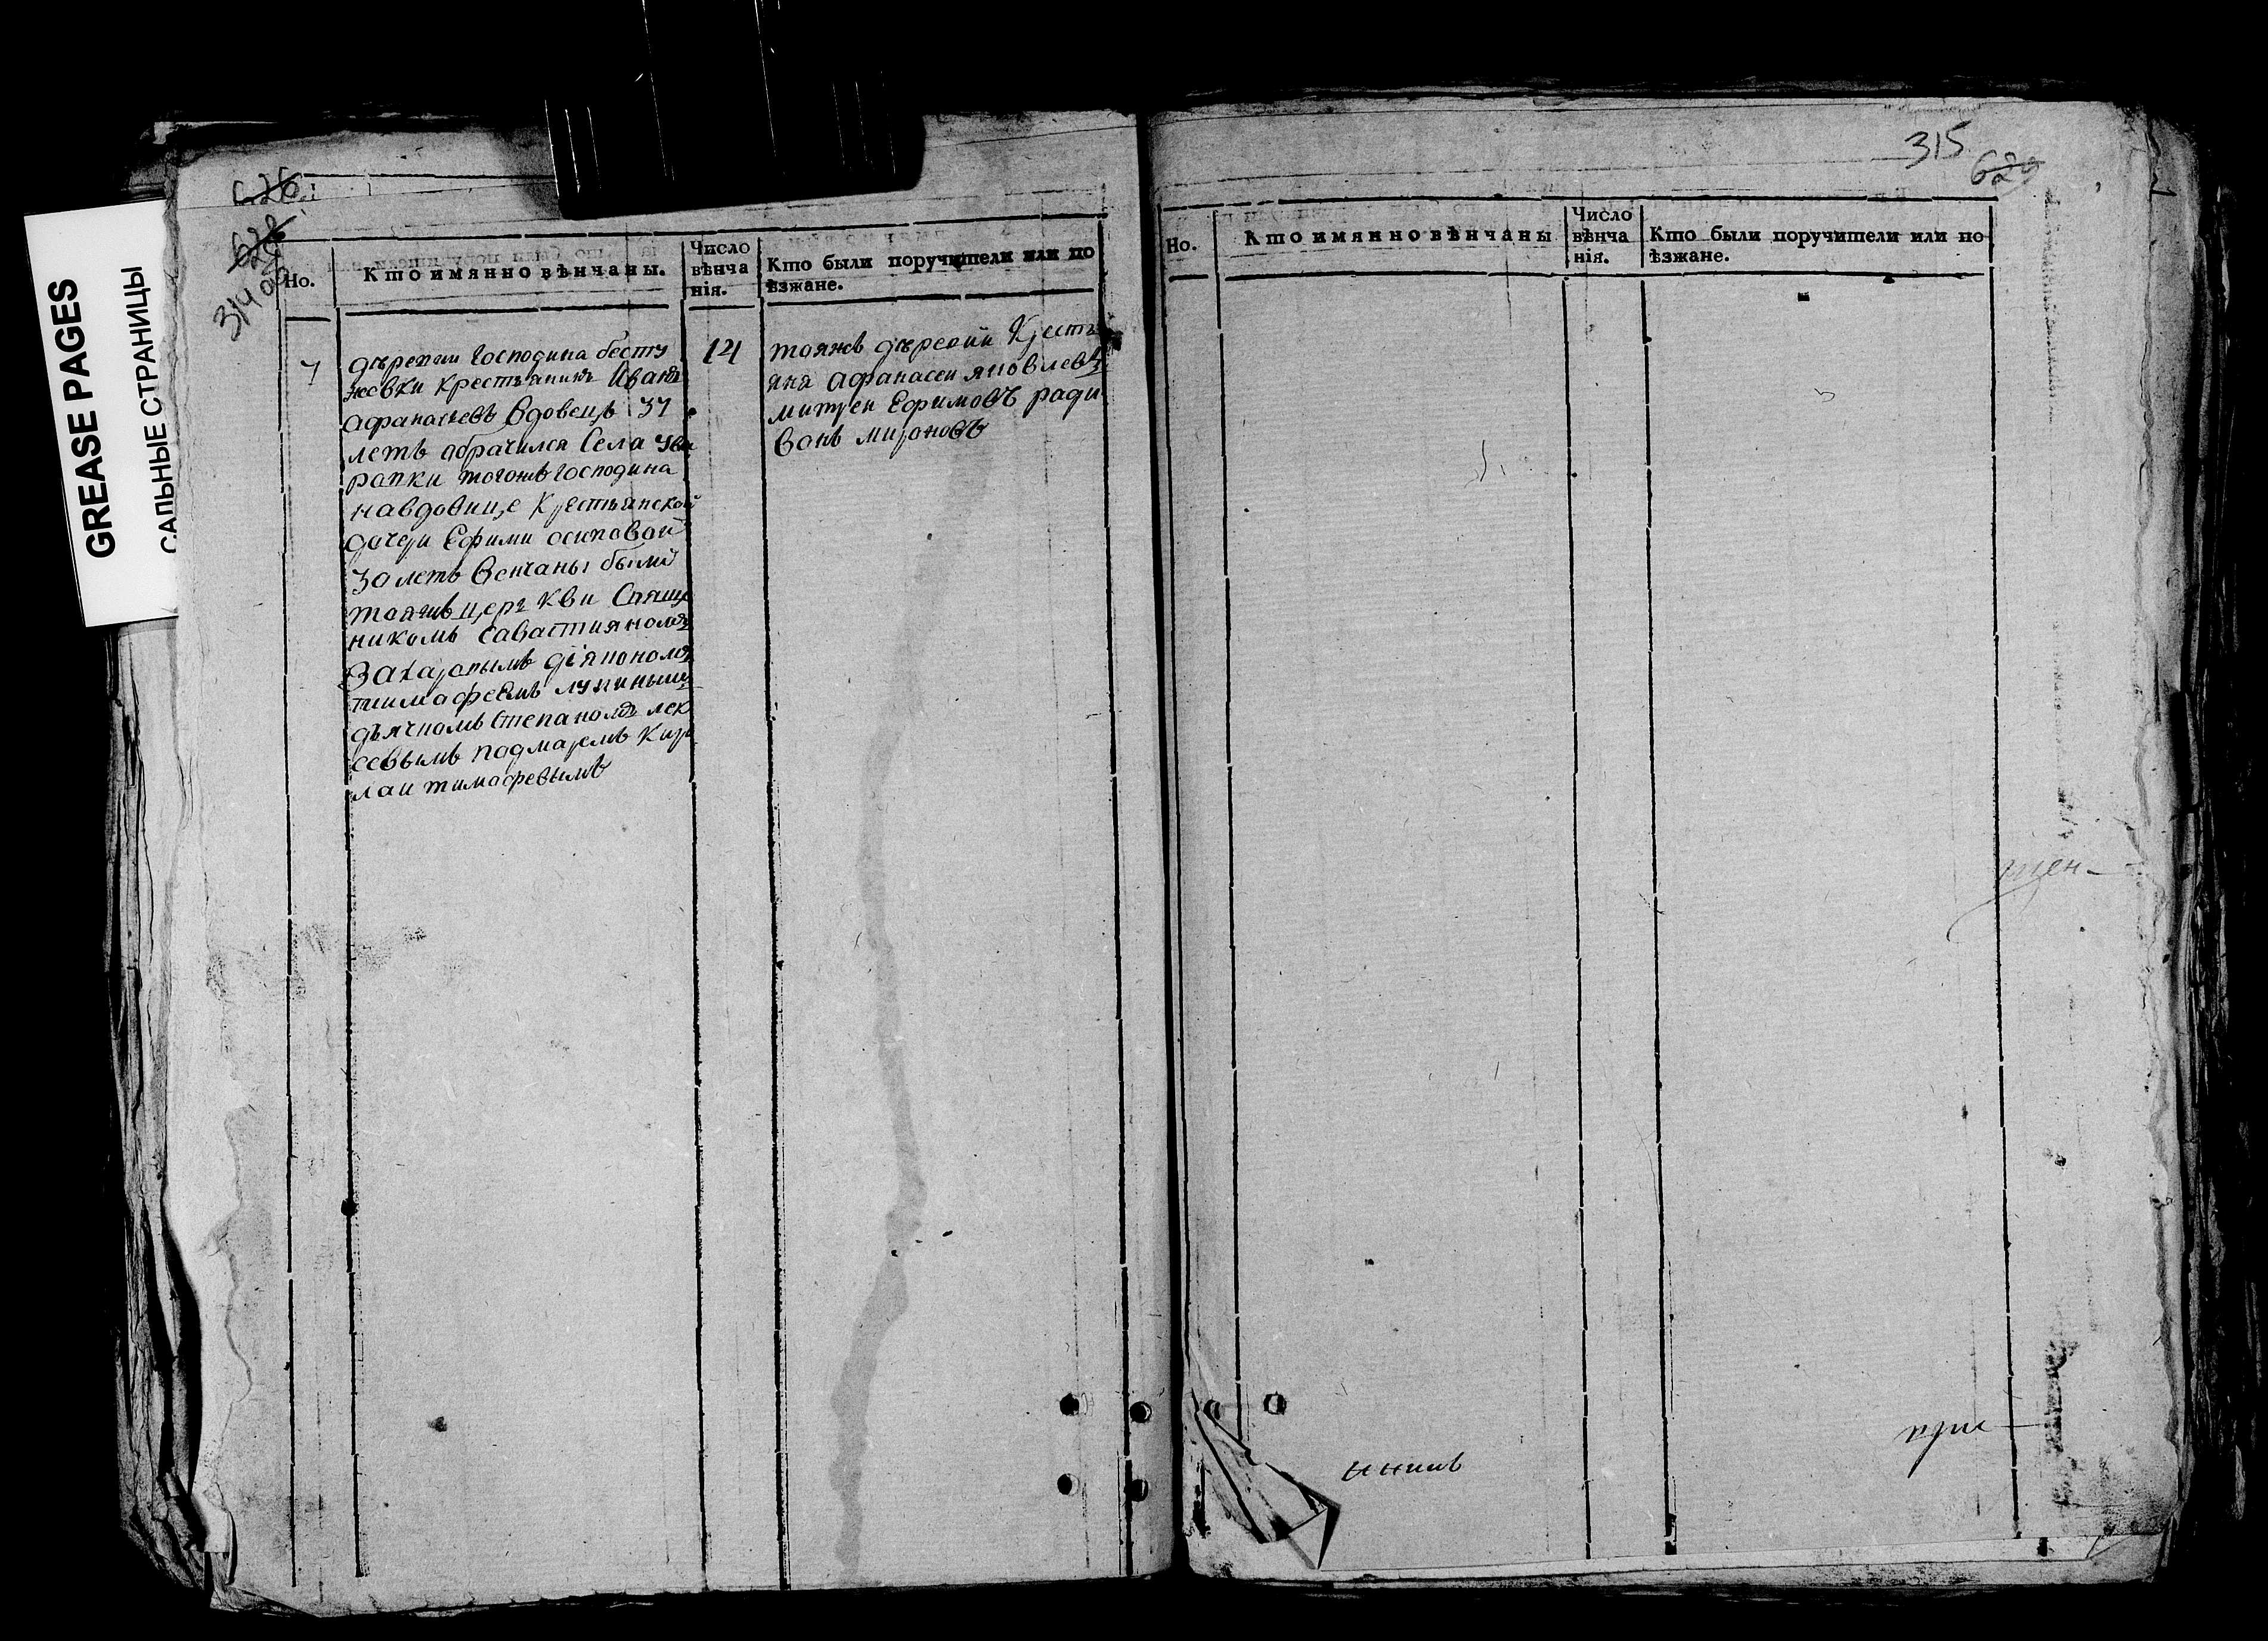 GREASE PAGES
САЛЬНЫЕ СТРАНИЦЫ
626
628
314 об
Но.
Кто имянно вѣнчаны.
Число вѣнча нія.
Кто были поручители или по ѣзжане.
7
дѣревни Господина бесту
жевки крестьянинъ Иванъ
афанасьевъ вдовецъ 37
летъ обрачился Села ува
ровки тогожъ Господина
навдовице Крестьянской
дочери Ефими осиповой
30 летъ Венчаны были
тояжъ церькви Свящѣ
никомъ Савастияномъ
Захаровымъ діякономъ
тимафеемъ лукинымъ
дьячкомъ Степаномъ лек
сеевымъ подмаремъ Кир
лаи тимофевымъ
14
тояжъ дѣревни Кресть
яна афанасеи яковлевъ
митреи Ефимовъ ради
вонъ мироновъ
315
629
Но.
Кто имянно вѣнчаны
Число вѣнча нія.
Кто были поручители или по ѣзжане.
щен-
при